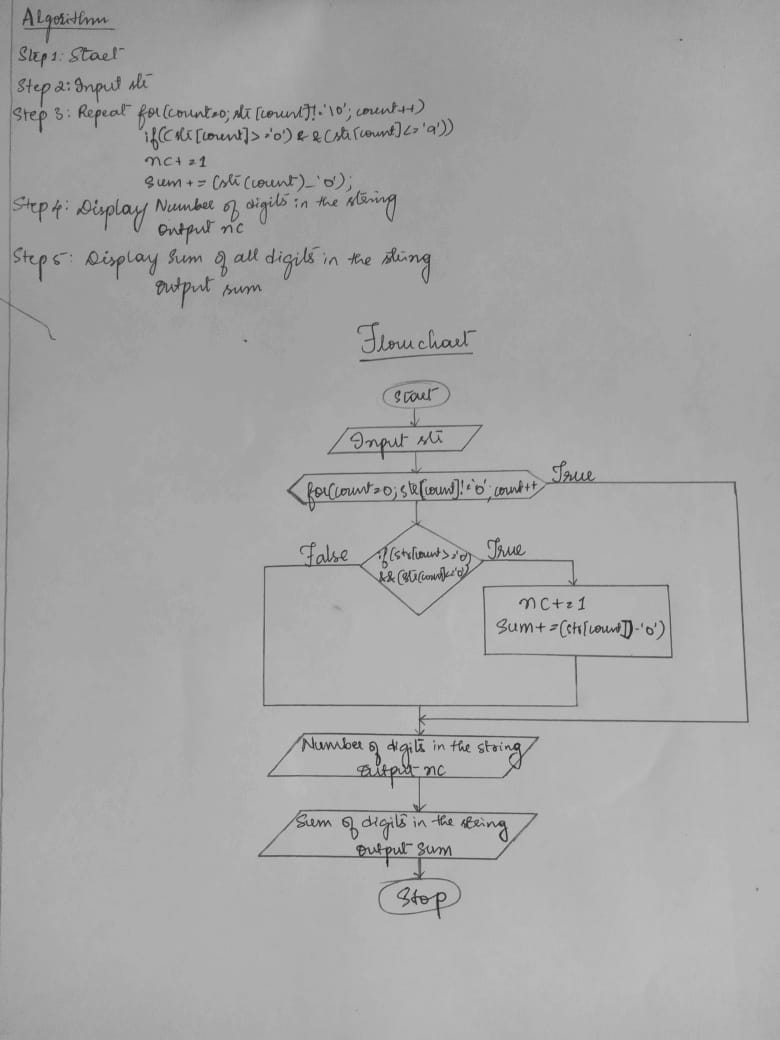 Algorithm
Step 1: Start
Step 2: Input str
Step 3: Repeat for(count=0; str[count]!='\0'; count++)
if((str[count]>='0') && (str[count]<='9'))
nc+=1
sum+=(str(count)-'0');
Step 4: Display Number of digits in the string
output nc
Step 5: Display sum of all digits in the string
output sum
Flowchart
Start
Input str
for(count=0; str[count]!='0'; count++
True
False
if(str[count>='0')
&& (str[count]<='0')
True
nc+=1
sum+=(str[count])-'0')
Number of digits in the string
output nc
Sum of digits in the string
output sum
Stop